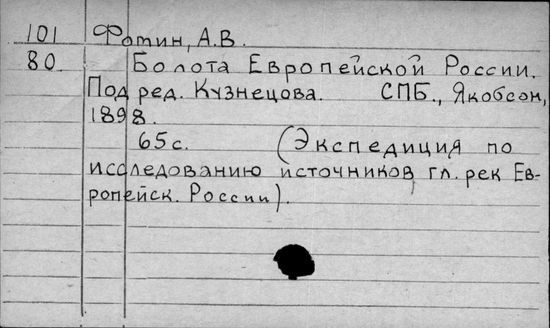 101 Фомин, А.В.
80 Болота Европейской России.
Под ред. Кузнецова. СПБ., Якобсон,
1898.
65 с. (Экспедиция по
исследованию источников гл. рек Ев-
ропейск. России).